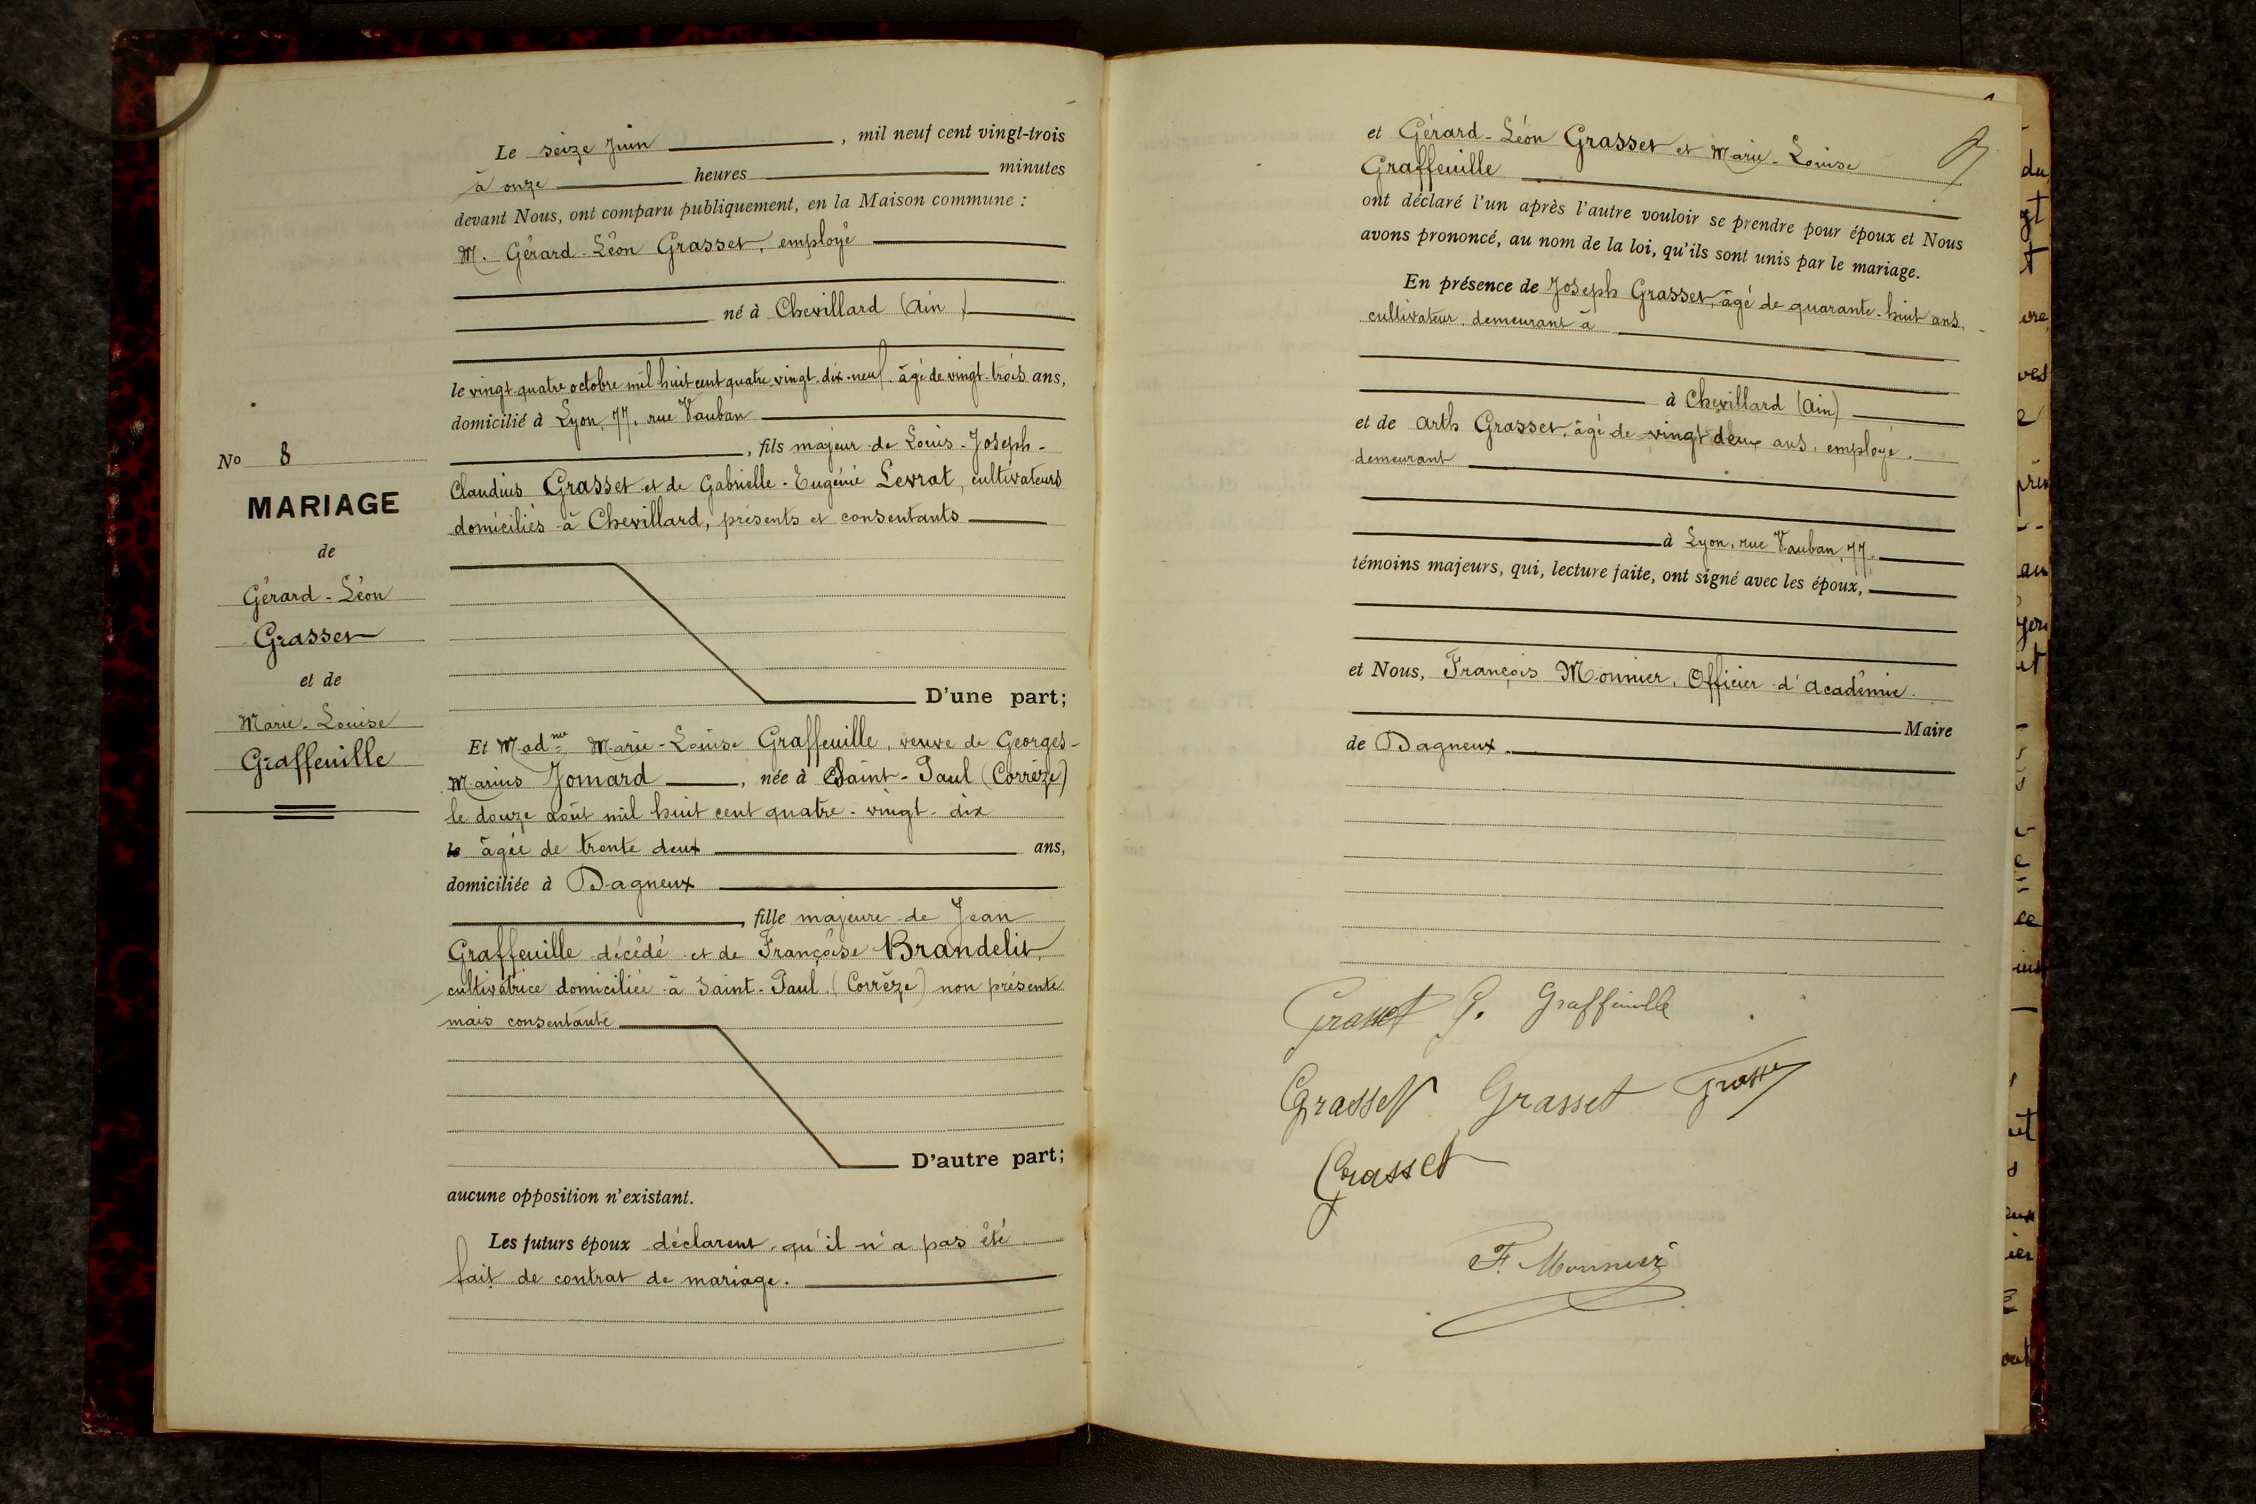 Le seize Juin, mil neuf cent vingt-trois
à onze heures minutes
devant Nous, ont comparu publiquement, en la Maison commune :
M. Gérard-Léon Grasset, employé
né à Chevillard (Ain)
le vingt-quatre octobre mil huit cent quatre vingt-dix-neuf. âgé de vingt-trois ans,
domicilié à Lyon, 77, rue Vauban
, fils majeur de Louis-Joseph-
Claudius Grasset et de Gabrielle-Eugénie Levrat, cultivateurs
domiciliés à Chevillard, présents et consentants
D'une part;
No 8
MARIAGE
de
Gérard-Léon
Grasset
et de
Marie-Louise
Graffeuille
Et Madme Marie-Louise Graffeuille, veuve de Georges-
Marius Jomard, née à Saint-Paul (Corrèze)
le douze août mil huit cent quatre-vingt-dix
âgée de trente deux ans,
domiciliée à Dagneux
, fille majeure de Jean
Graffeuille décédé et de Françoise Brandelit,
cultivatrice domiciliée à Saint-Paul (Corrèze) non présente
mais consentante
D'autre part;
aucune opposition n'existant.
Les futurs époux déclarent qu'il n'a pas été
fait de contrat de mariage.
et Gérard-Léon Grasset et Marie-Louise
Graffeuille
ont déclaré l'un après l'autre vouloir se prendre pour époux et Nous
avons prononcé, au nom de la loi, qu'ils sont unis par le mariage.
En présence de Joseph Grasset, âgé de quarante-huit ans,
cultivateur, demeurant à
à Chevillard (Ain)
et de Arth Grasset, âgé de vingt deux ans, employé,
demeurant
à Lyon, rue Vauban, 77.
témoins majeurs, qui, lecture faite, ont signé avec les époux,
et Nous, François Monnier, Officier d'Académie.
Maire
de Dagneux.
Grasset G. Graffeuille
Grasset Grasset
Grasset
F. Monnier